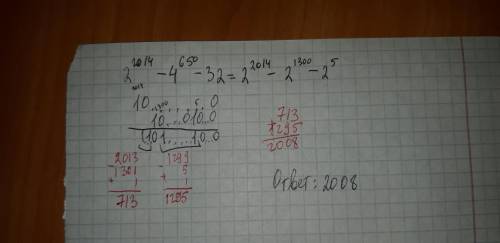 2^2014 - 4^650 - 32 = 2^2014 - 2^1300 - 2^5
2014
10..........0
1300 5
10....010..0
101......10..0
2013
- 1301
+ 1
713
1299
- 5
+ 1
1295
713
+ 1295
2008
Ответ: 2008